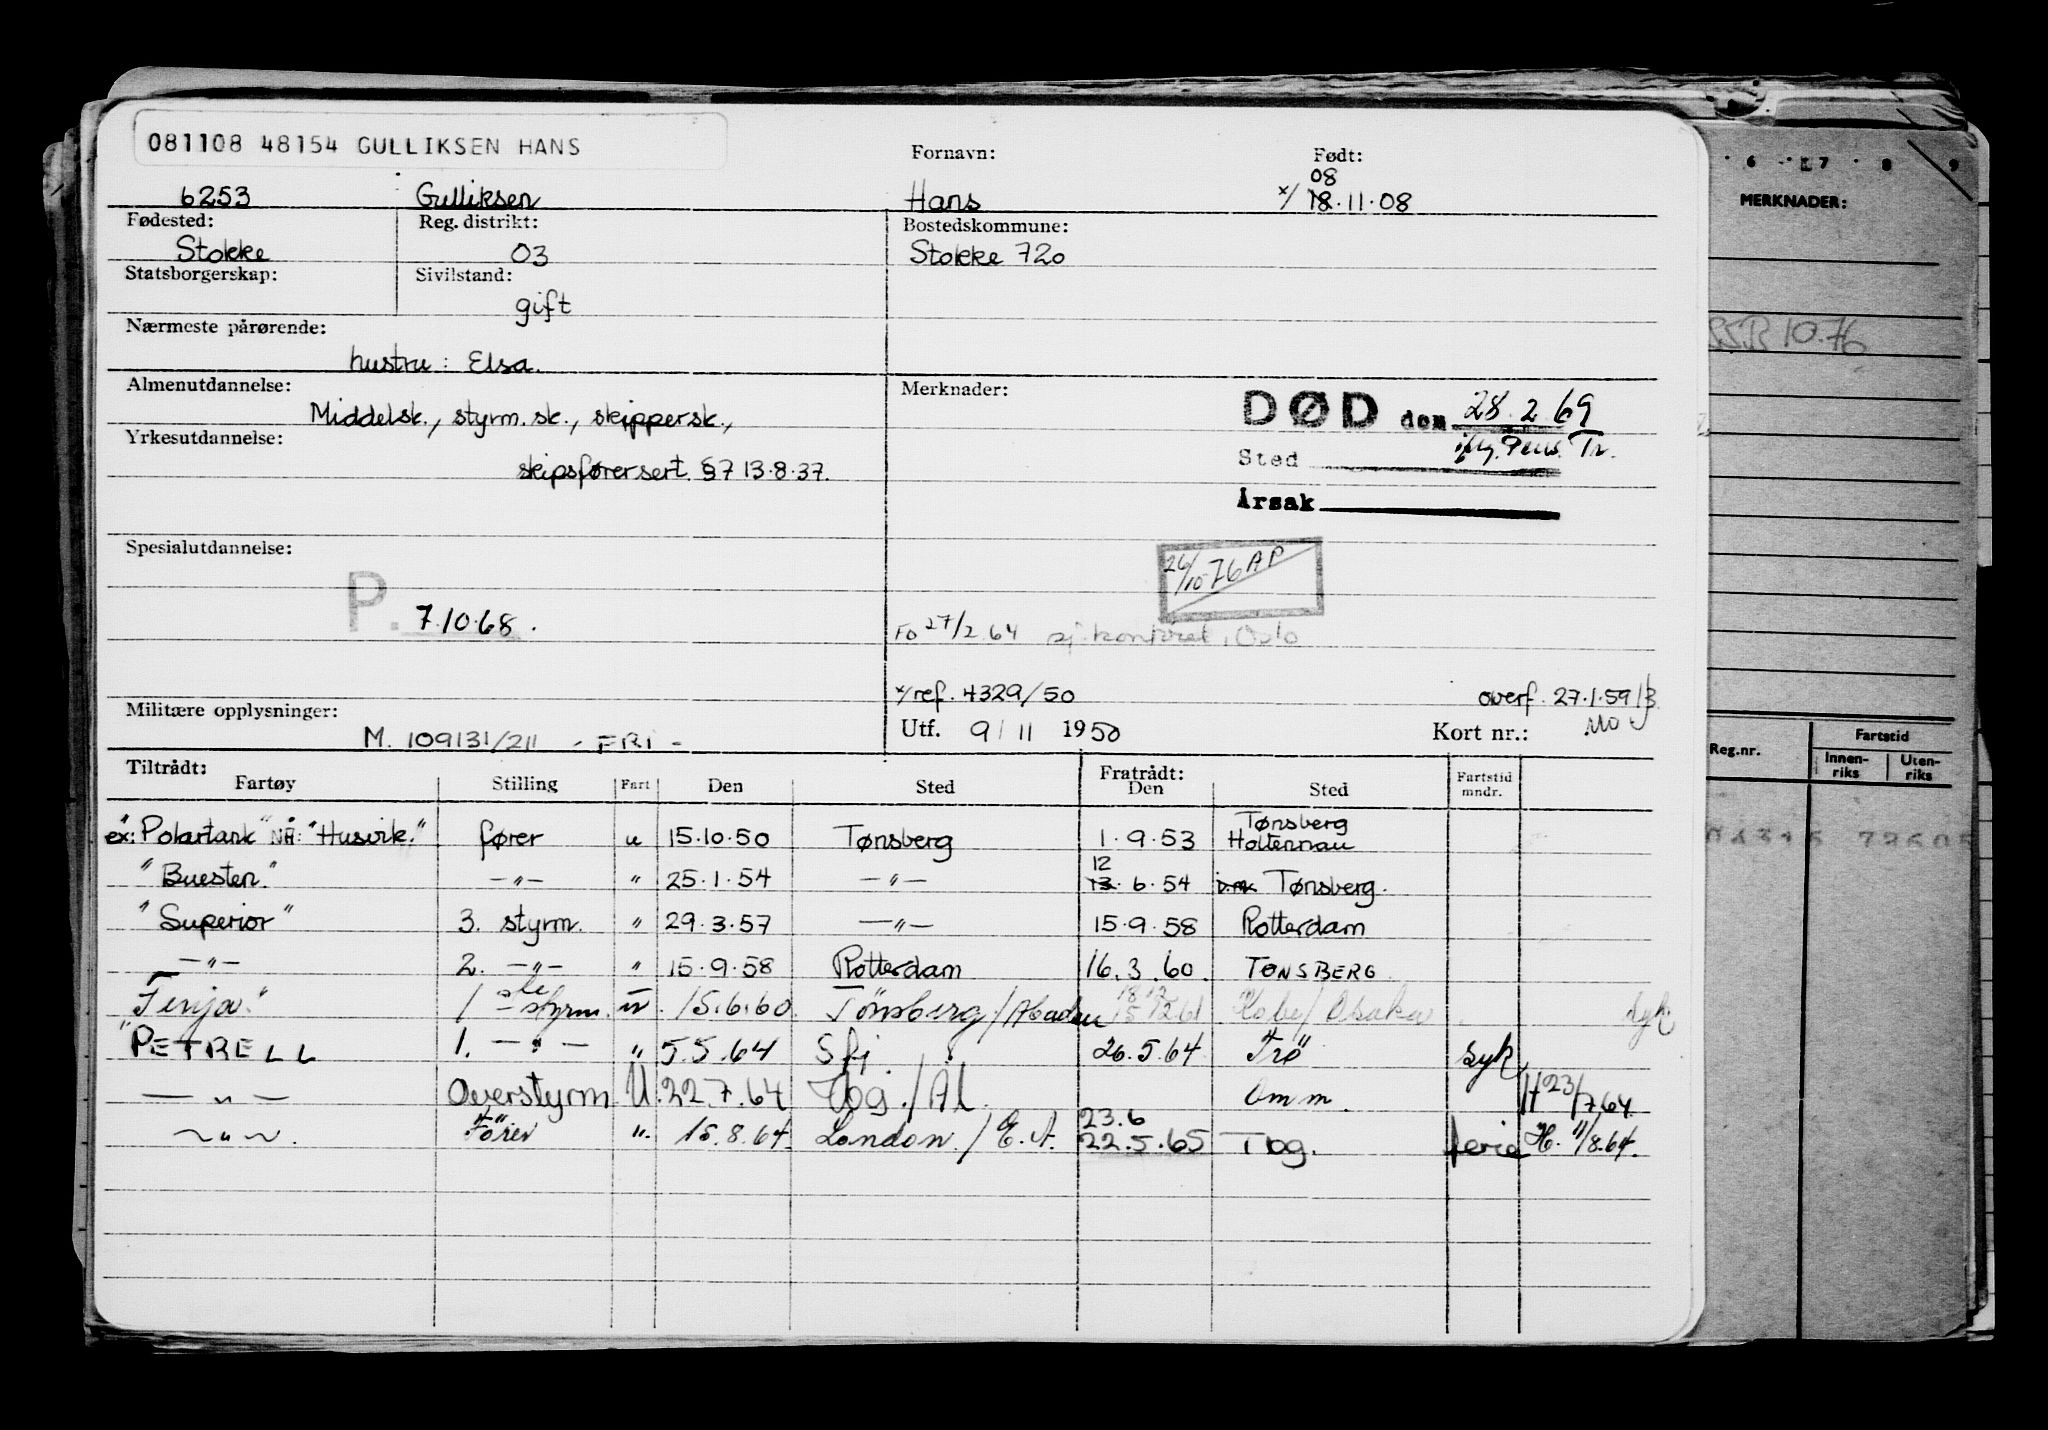 081108 48154 GULLIKSEN HANS
Fornavn: Født:
08
6253 Gulliksen Hans x/ 18.11.08
Fødested: Reg. distrikt: Bostedskommune:
Stokke 03 Stokke 720
Statsborgerskap: Sivilstand:
gift
Nærmeste pårørende:
hustru: Elsa.
Almenutdannelse: Merknader:
Middelsk., styrm.sk., skippersk.,
DØD den 28.2.69
Yrkesutdannelse:
iflg. Pens. Tr.
Sted
skipsførersert. §7 13.8.37.
Årsak
Spesialutdannelse:
26/10 76 AP
P. 7.10.68.
FO 27/2.64 sj.kontoret, Oslo
x/ref. 4329/50 overf. 27.1.59/3
Militære opplysninger: Utf. 9/11 1950 Kort nr.:
M. 109131/211 - FRI -
Tiltrådt: Fratrådt:
Fartøy Stilling Fart Den Sted Den Sted Fartstid mndr.
Tønsberg
ex: "Polartank" NÅ: "Husvik." fører u 15.10.50 Tønsberg 1.9.53 Holtenau
12
"Buesten." —"— " 25.1.54 —"— 13.6.54 Tønsberg.
"Superior" 3. styrm. " 29.3.57 —"— 15.9.58 Rotterdam
—"— 2. —"— " 15.9.58 Rotterdam 16.3.60. TØNSBERG
18.12
"Ferja" 1 ste styrm. u. 15.6.60 Tönsberg / Abadan 15/12 61 Kobe / Osaka syk
"PETRELL 1. —"— " 5.5.64 Sfj. 26.5.64 Frö syk
—"— Overstyrm U. 22.7.64 Tbg. / Ål. Omm. H 23/7.64.
23.6
—"—. Förer ". 15.8.64. London / E.A. 22.5.65 Tbg. ferie H. 11/8.64.
6 7 8 9
MERKNADER:
SSR 10.76
Reg.nr. Fartstid
Innenriks Utenriks